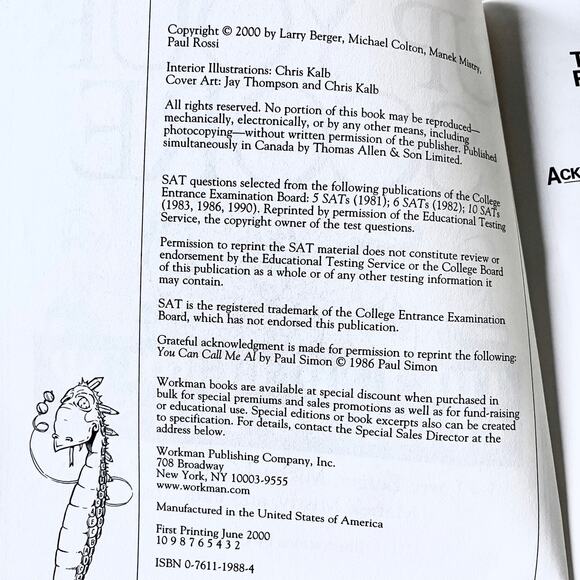 Copyright © 2000 by Larry Berger, Michael Colton, Manek Mistry,
Paul Rossi
Interior Illustrations: Chris Kalb
Cover Art: Jay Thompson and Chris Kalb
All rights reserved. No portion of this book may be reproduced—
mechanically, electronically, or by any other means, including
photocopying—without written permission of the publisher. Published
simultaneously in Canada by Thomas Allen & Son Limited.
SAT questions selected from the following publications of the College
Entrance Examination Board: 5 SATs (1981); 6 SATs (1982); 10 SATs
(1983, 1986, 1990). Reprinted by permission of the Educational Testing
Service, the copyright owner of the test questions.
Permission to reprint the SAT material does not constitute review or
endorsement by the Educational Testing Service or the College Board
of this publication as a whole or of any other testing information it
may contain.
SAT is the registered trademark of the College Entrance Examination
Board, which has not endorsed this publication.
Grateful acknowledgment is made for permission to reprint the following:
You Can Call Me Al by Paul Simon © 1986 Paul Simon
Workman books are available at special discount when purchased in
bulk for special premiums and sales promotions as well as for fund-raising
or educational use. Special editions or book excerpts also can be created
to specification. For details, contact the Special Sales Director at the
address below.
Workman Publishing Company, Inc.
708 Broadway
New York, NY 10003-9555
www.workman.com
Manufactured in the United States of America
First Printing June 2000
10 9 8 7 6 5 4 3 2
ISBN 0-7611-1988-4